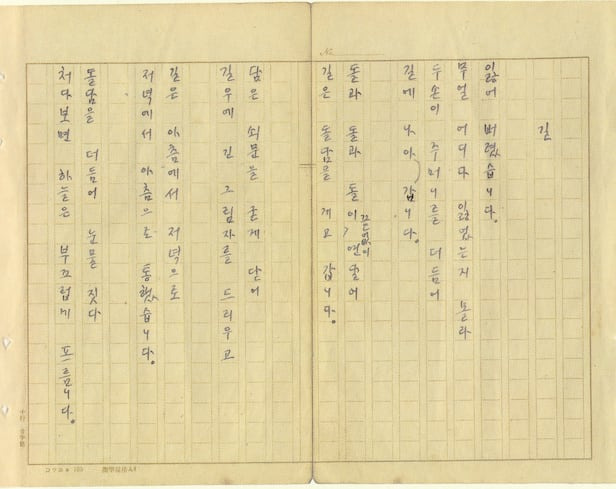 No.
길
잃어 버렸습니다.
무얼 어디다 잃었는지 몰라
두손이 주머니를 더듬어
길에 나아갑니다.
돌과 돌과 돌이 끝없이 연달어
길은 돌담을 끼고 갑니다.
담은 쇠문을 굳게 닫어
길우에 긴 그림자를 드리우고
길은 아츰에서 저녁으로
저녁에서 아츰으로 통했습니다.
돌담을 더듬어 눈물 짓다
처다보면 하늘은 부끄럽게 프릅니다.
コクヨ